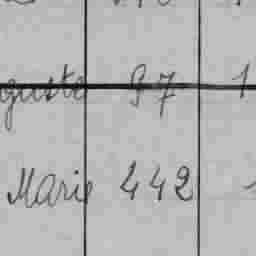 guste 97 1
Marie 442